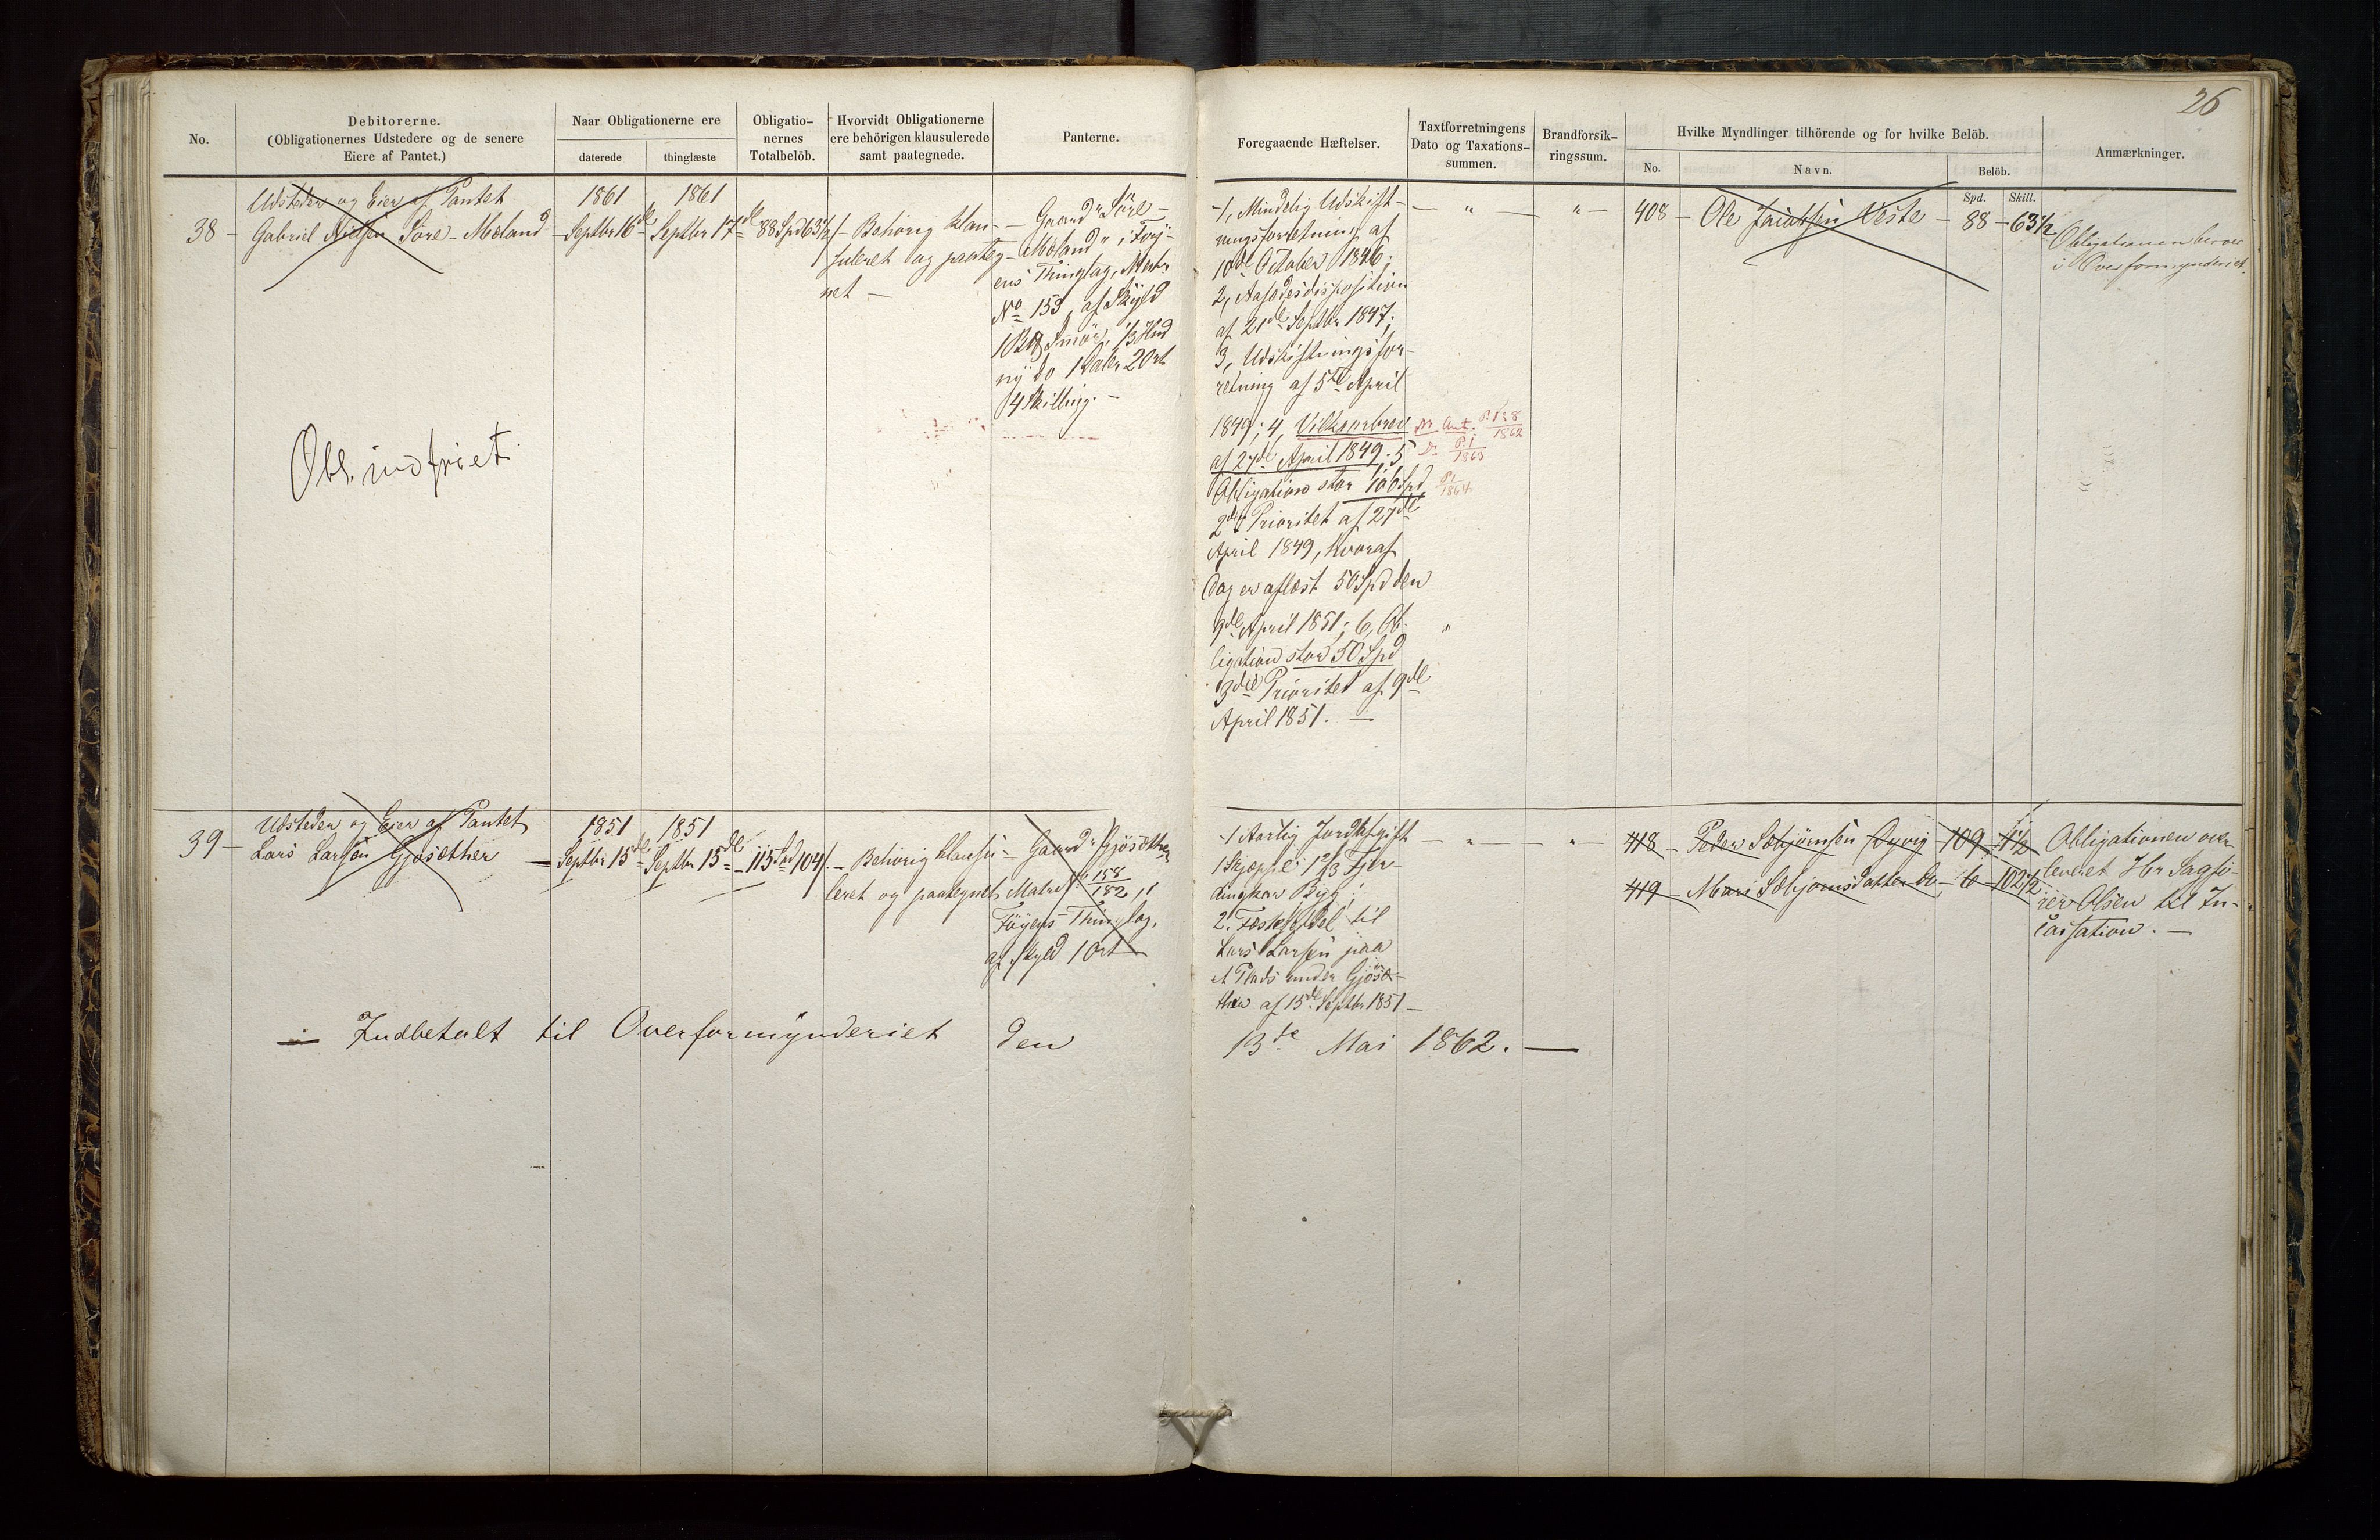 26
No.
Debitorerne.
(Obligationernes Udstedere og de senere
Eiere af Pantet.)
Naar Obligationerne ere
daterede
thinglæste
Obligatio-
nernes
Totalbelöb.
Hvorvidt Obligationerne
ere behörigen klausulerede
samt paategnede.
Panterne.
Foregaaende Hæftelser.
Taxtforretningens
Dato og Taxations-
summen.
Brandforsik-
ringssum.
Hvilke Myndlinger tilhörende og for hvilke Belöb.
No.
Navn.
Belöb.
Spd.
Skill.
Anmærkninger.
38 –
Udsteder og Eier af Pantet
Gabriel Nilsen Söre-Mæland
1861
Septbr 16de
1861
Septbr 17de
88 Spd 63½
– Behörig klau-
suleret og paateg-
net –
– Gaard "Söre-
Mæland" i Föÿ-
ens Thinglag, Matr.
No 153, af Skyld
Smör, ⅓ Hud
nÿ do 1 Daler 2 Ort
4 Skilling. –
Obl. indfriet.
1, Mindelig Udskift-
ningsforretning af
10de October 1846;
2, Aasædesdisposition
af 21de Septbr 1847;
3, Udskiftningsfor-
retning af 5te April
1849; 4, Vilkaarbrev
af 27de April 1849. 5,
Obligation stor 106 Spd
2den Prioritet af 27de
April 1849, hvoraf
dog er aflæst 50 Spd den
9de April 1851; 6, Ob-
ligation stor 50 Spd
3die Prioritet af 9de
April 1851. –
P. 138
1862
P. 1
1863
P. 1
1864
– " –
– " –
408 – Ole Jacobsen Veste – 88 – 63½
Obligationen beroer
i Overformynderiet.
39 –
Udsteder og Eier af Pantet
Lars Larsen Gjösæther
1851
Septbr 15de
1851
Septbr 15de
115 Spd 104
– Behörig klausu-
leret og paategnet
– Gaard "Gjösæther"
Matr No 158
182, i
Föyens Thinglag,
af Skyld 1 Ort
1 Aarlig Jordafgift
1 Skjæppe 1⅔ Fjer-
dingkar Byg;
2. Fæsteseddel til
Lars Larsen paa
et Plads under Gjösæ-
ther af 15de Septbr 1851 –
– " –
– " –
418 – Peder Sæbjörnsen Dyvig – 109 – 1½
419 – Mari Sæbjörnsdatter do – 6 – 102½
Obligationen over
leveret Hr Sagfö-
rer Olsen til In-
cassation. –
– Indbetalt til Overformynderiet den
13de Mai 1862. –